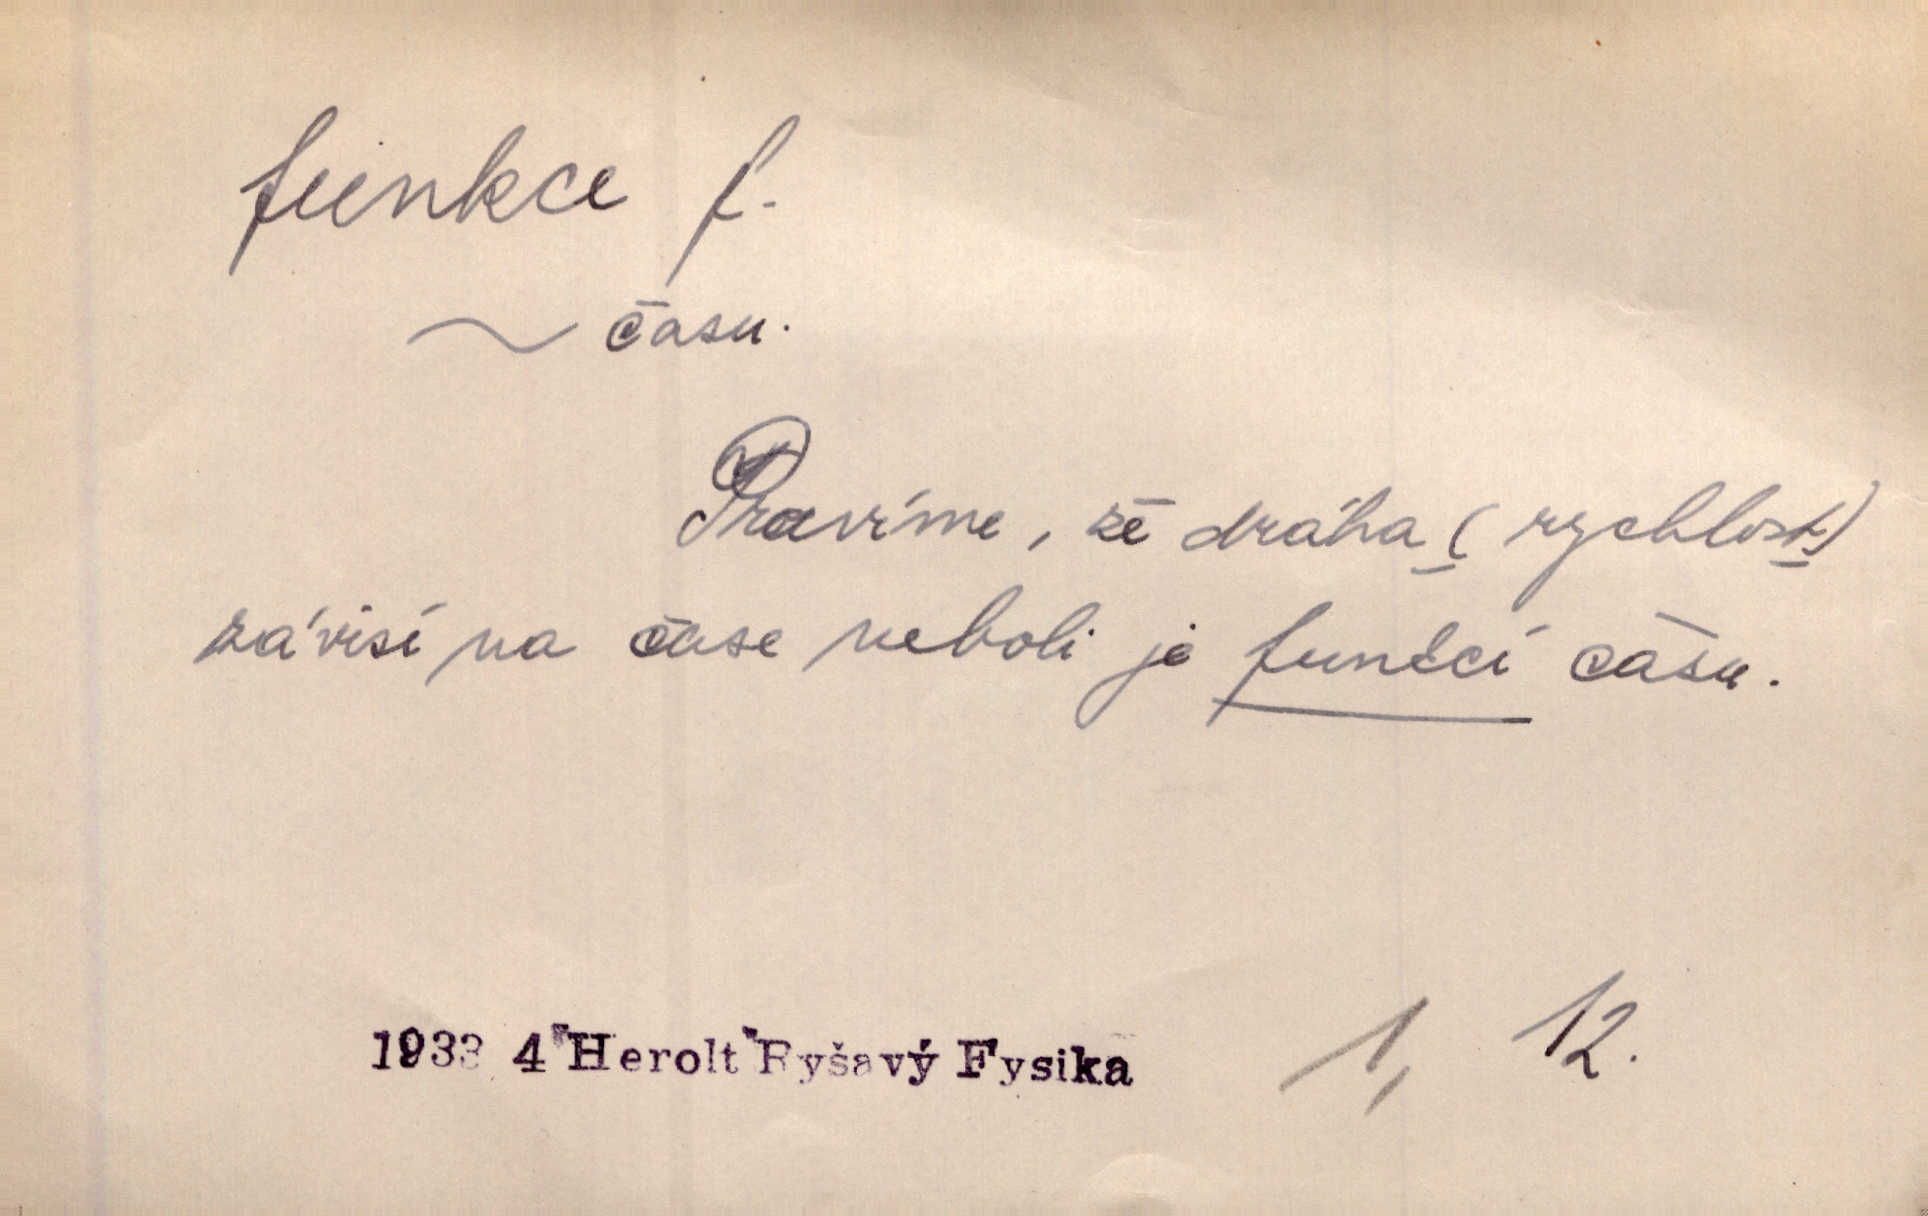 funkce f.
~ času.
Pravíme, že dráha ( rychlost)
závisí na čase neboli je funkcí času.
1933 4 "Herolt" Ryšavý Fysika 1, 12.